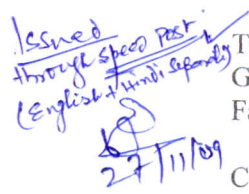 Issued
through speed post.
(English + Hindi separately)
27/11/09
T
G
F
C